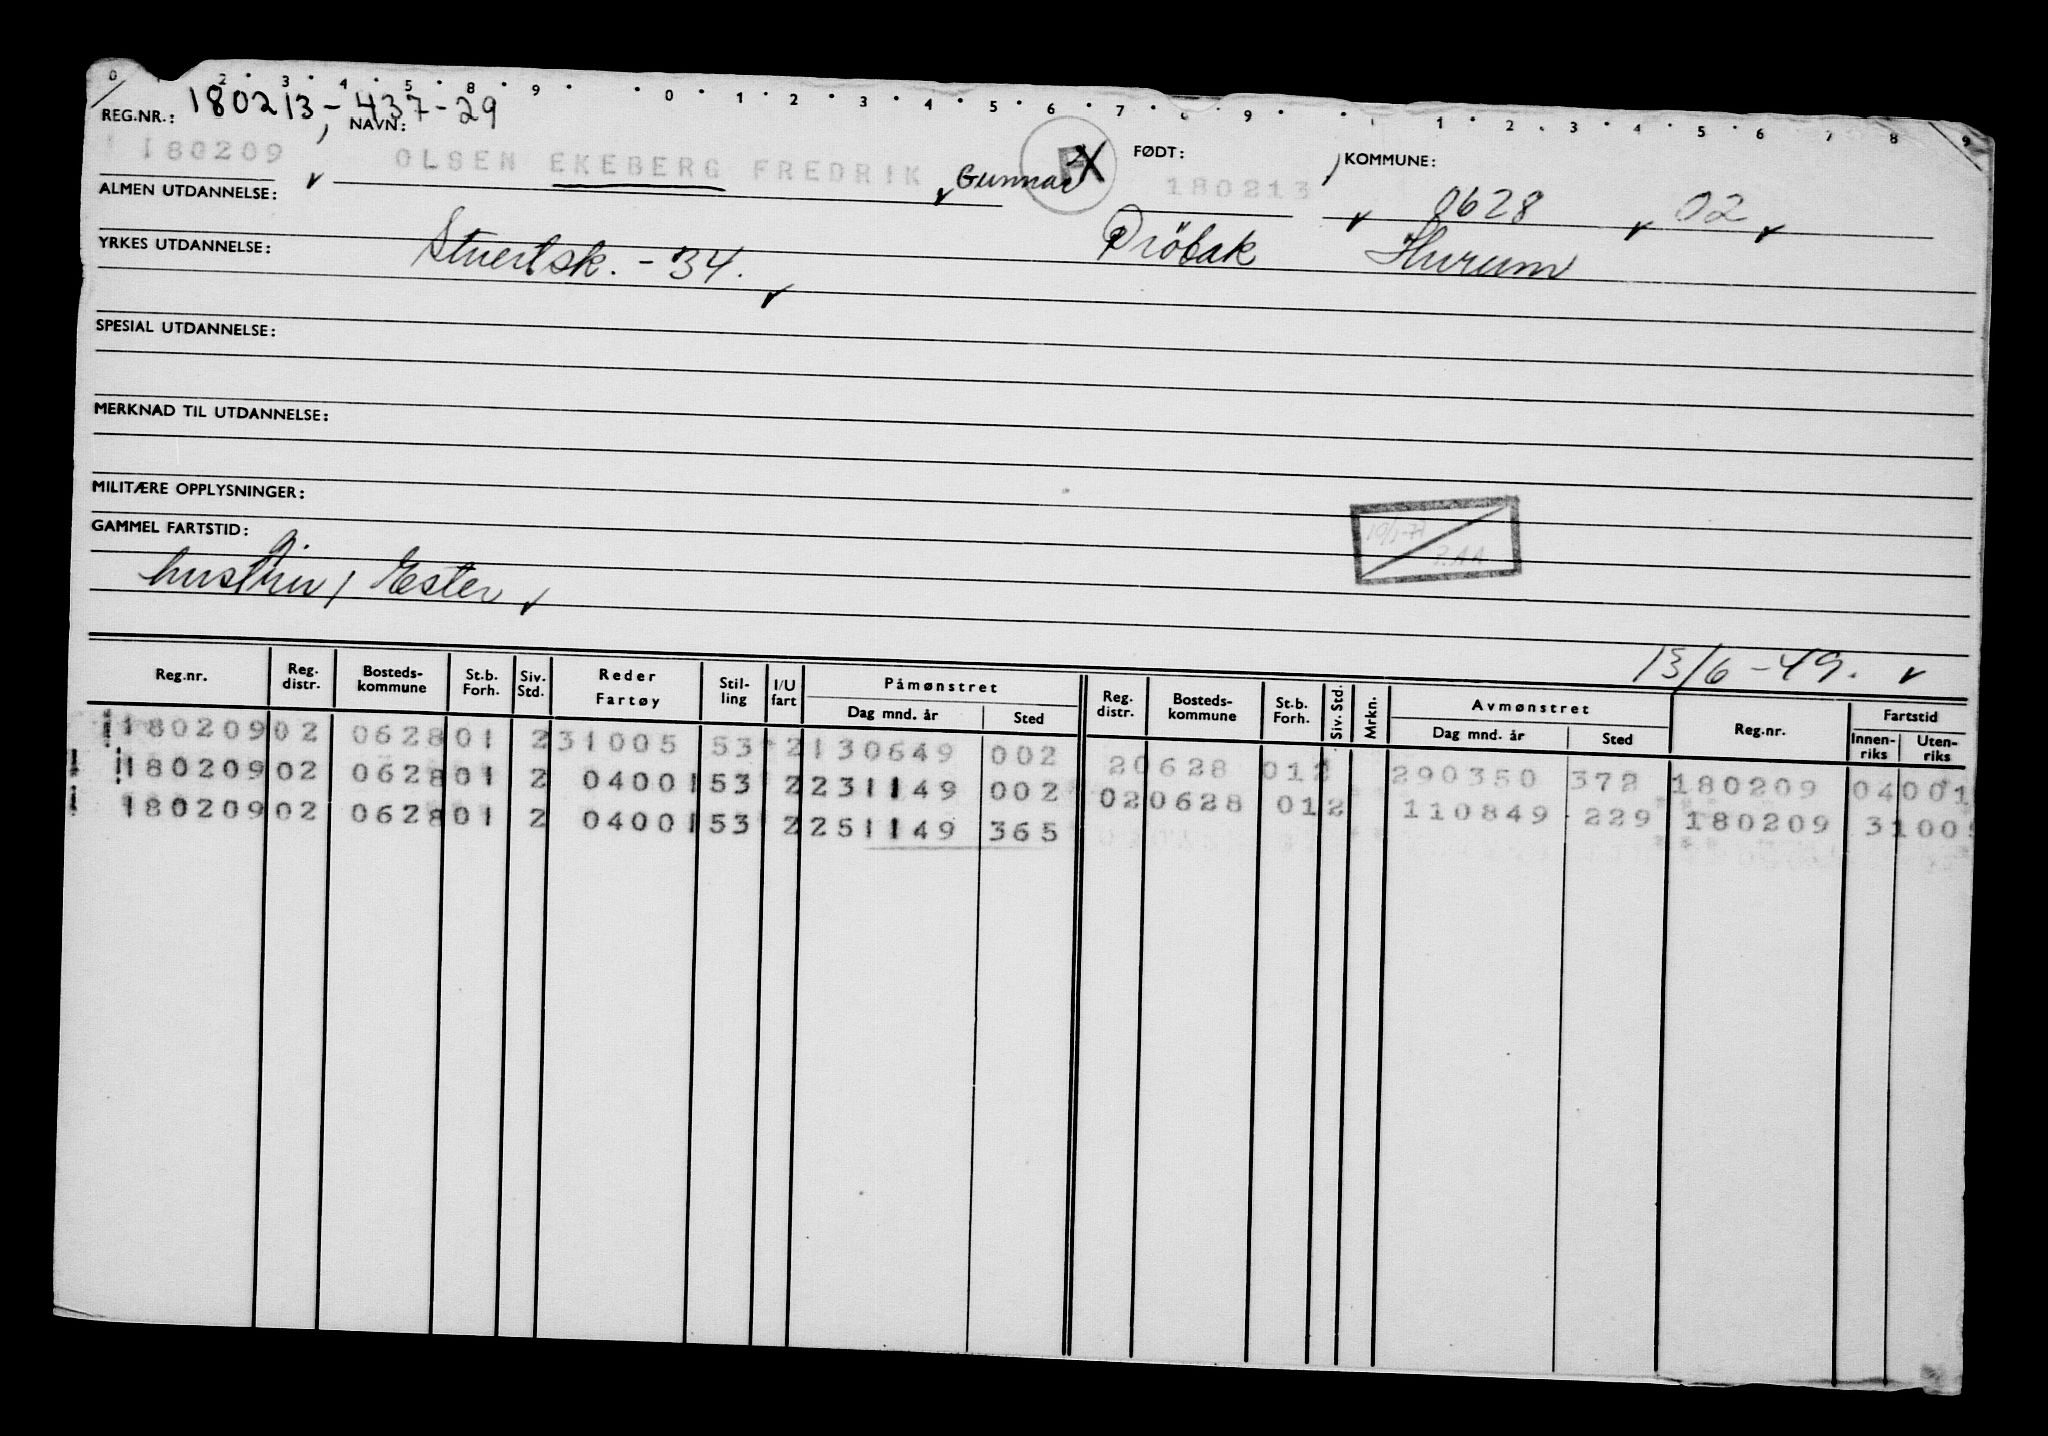 0 2 3 4 5 8 9 0 1 2 3 4 5 6 7 8 9 1 2 3 4 5 6 7 8 9
REG.NR.: 180213-437-29
NAVN:
FØDT:
KOMMUNE:
180209 OLSEN EKEBERG FREDRIK Gunnar 180213 0628 02
ALMEN UTDANNELSE:
Dröbak Hurum
YRKES UTDANNELSE: Stuertsk. -34.
SPESIAL UTDANNELSE:
MERKNAD TIL UTDANNELSE:
MILITÆRE OPPLYSNINGER:
GAMMEL FARTSTID:
hustru, Ester
13/6-49.
Reg.nr. Reg. distr. Bosteds-kommune St.b. Forh. Siv. Std. Reder Fartøy Stil-ling I/U fart Påmønstret Dag mnd. år Sted Reg. distr. Bosteds-kommune St.b. Forh. Siv. Std. Mrkn. Avmønstret Dag mnd. år Sted Reg.nr. Fartstid Innen-riks Uten-riks
180209 02 0628 01 2 31005 53 2 130649 002 20628 012 290350 372 180209 04001
180209 02 0628 01 2 04001 53 2 231149 002 020628 012 110849 229 180209 3100
180209 02 0628 01 2 04001 53 2 251149 365